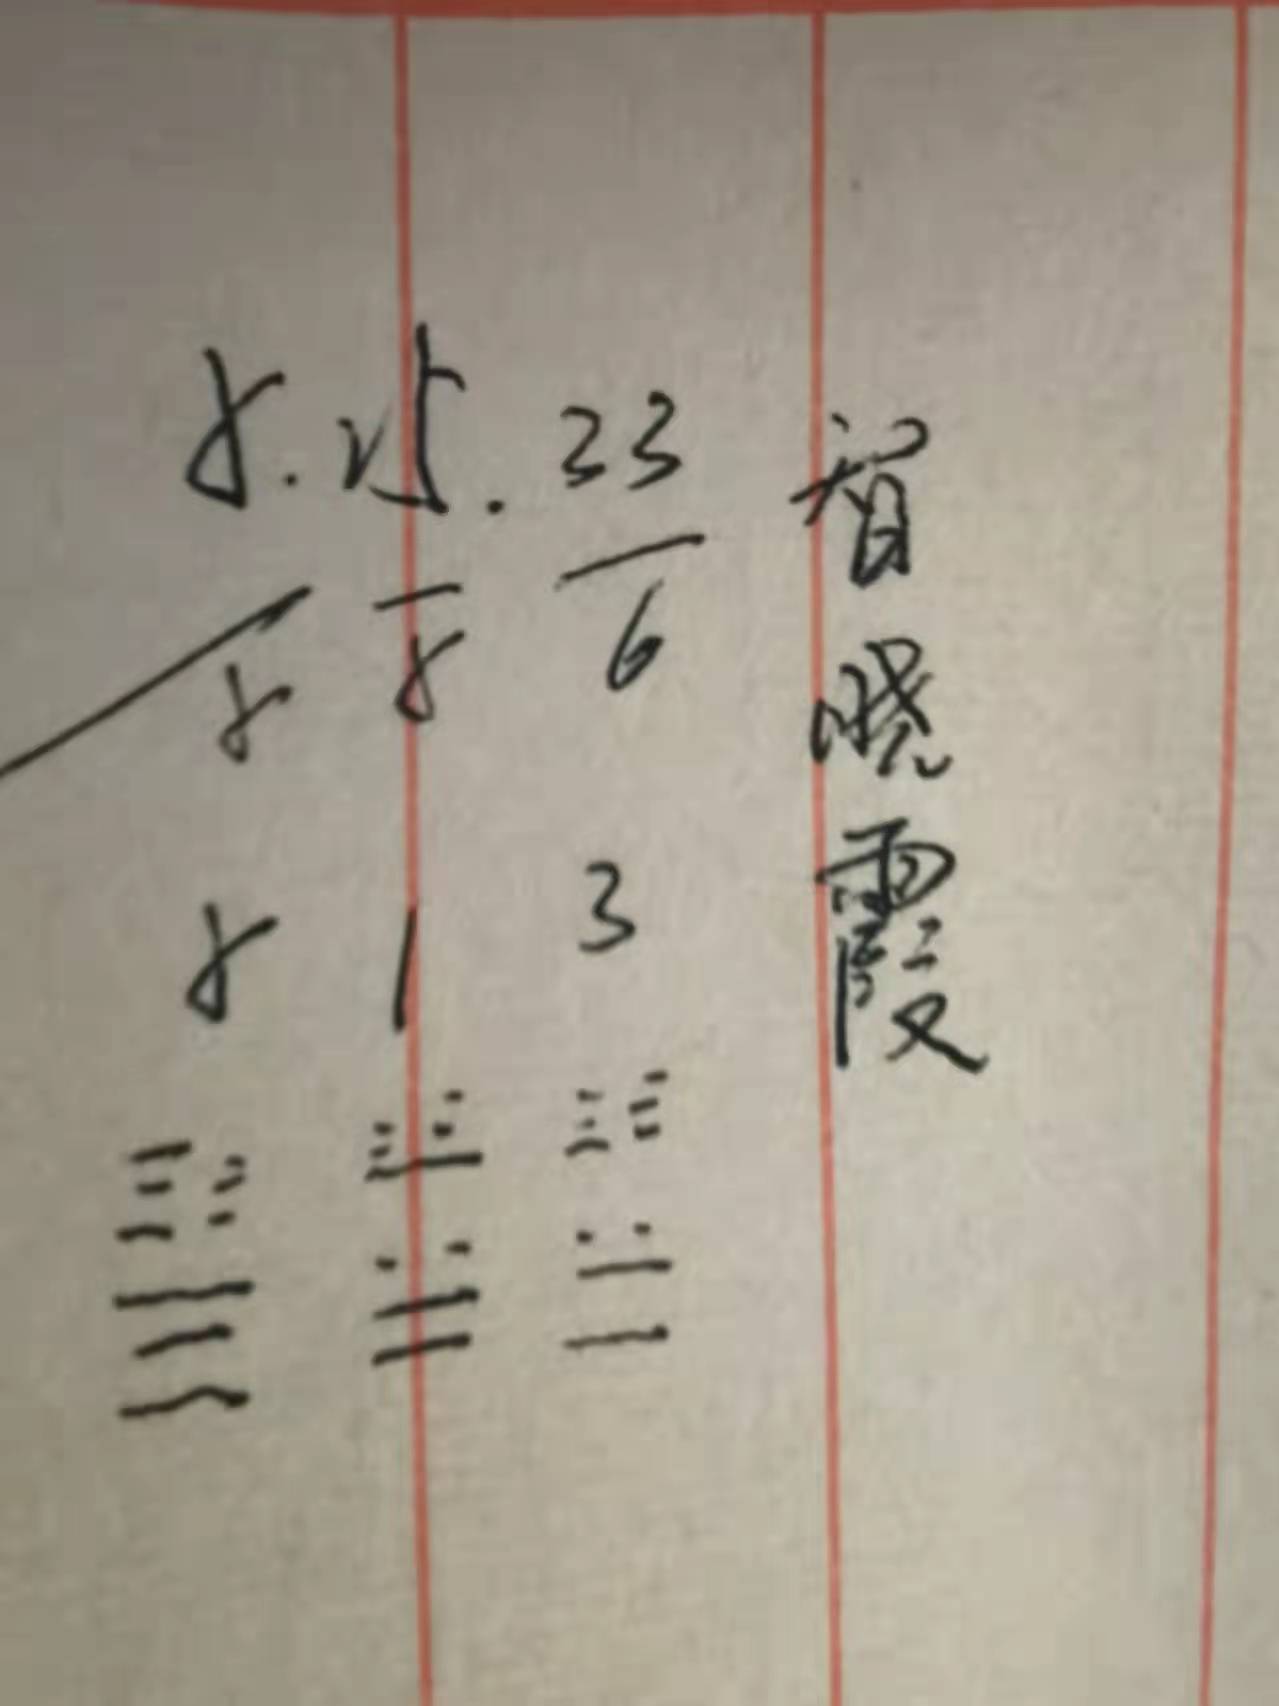 8.25.33
8 8 6
8 1 3
智晓霞